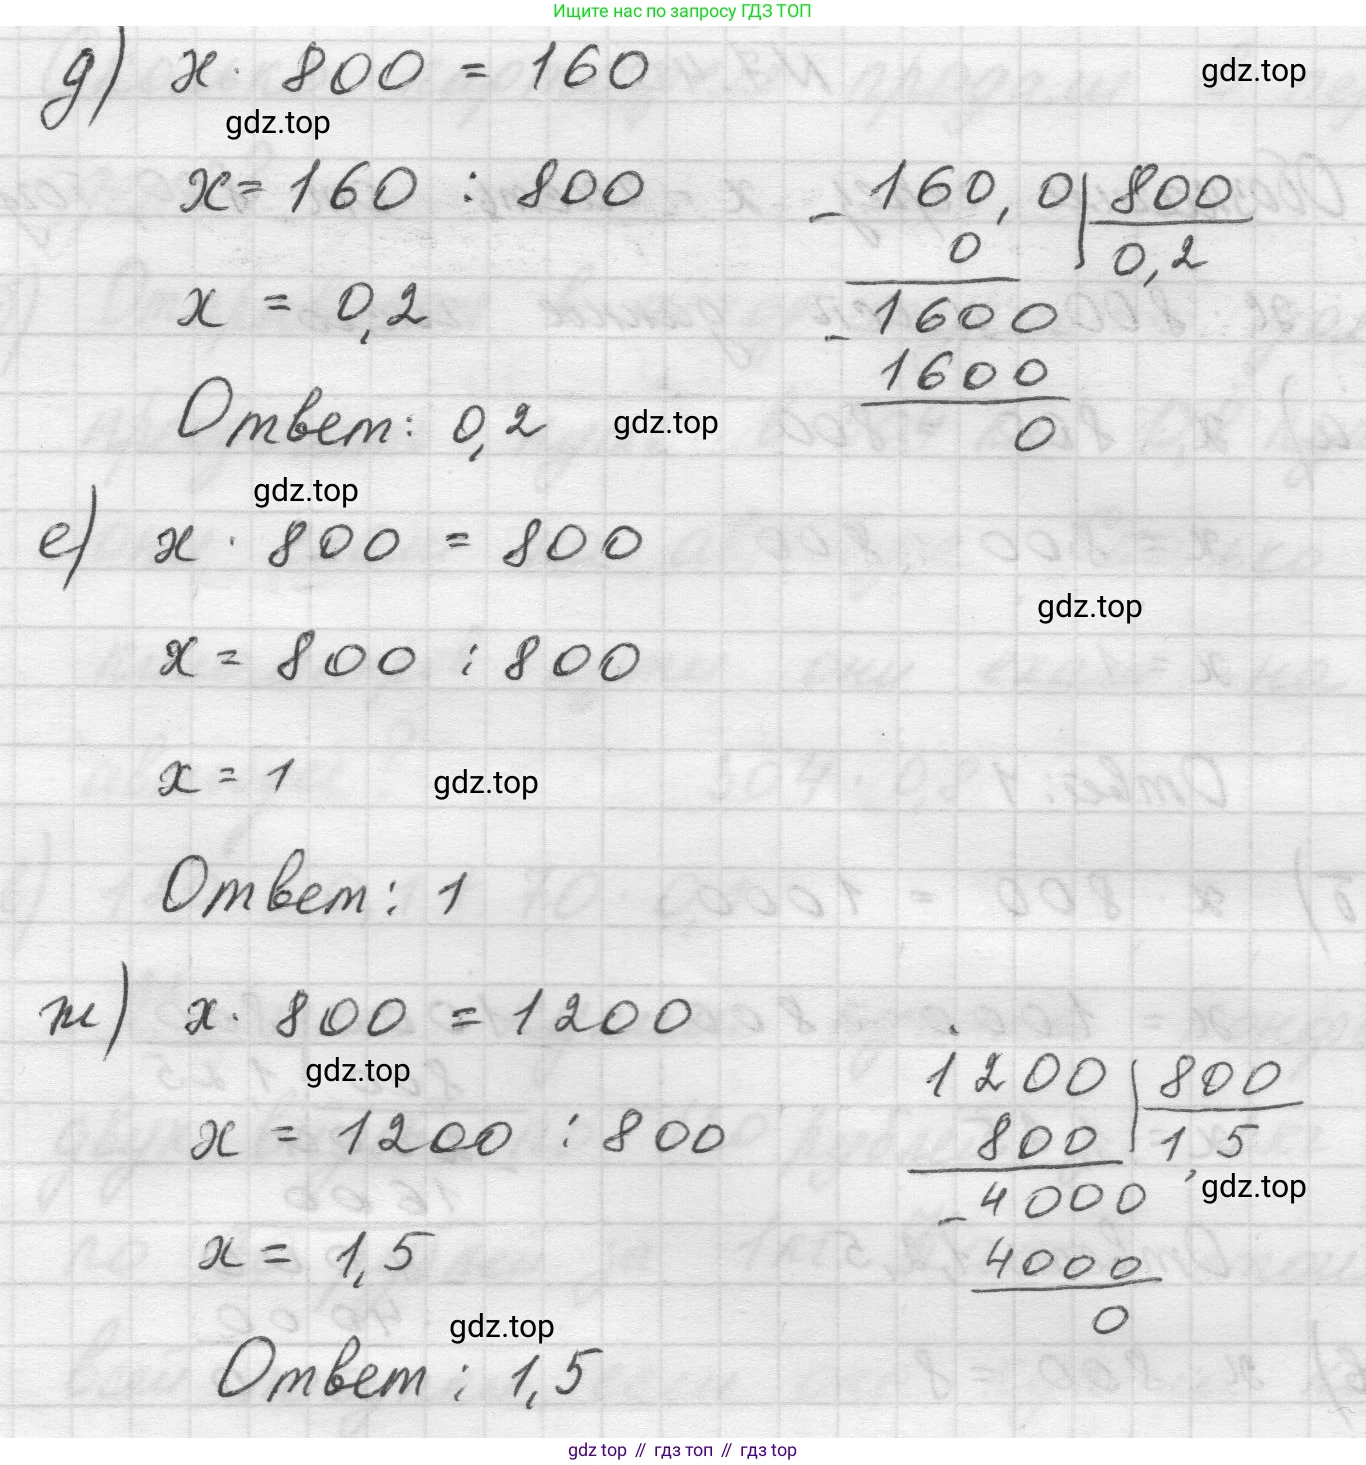 Ищите нас по запросу ГДЗ ТОП
д) x · 800 = 160
gdz.top
gdz.top
x = 160 : 800
x = 0,2
Ответ: 0,2
gdz.top
- 160,0 | 800
0 0,2
- 1600
1600
0
gdz.top
е) x · 800 = 800
gdz.top
x = 800 : 800
x = 1
gdz.top
Ответ: 1
ж) x · 800 = 1200
gdz.top
x = 1200 : 800
x = 1,5
gdz.top
Ответ: 1,5
1200 | 800
800 1,5
gdz.top
- 4000
4000
0
gdz top // гдз топ // гдз top